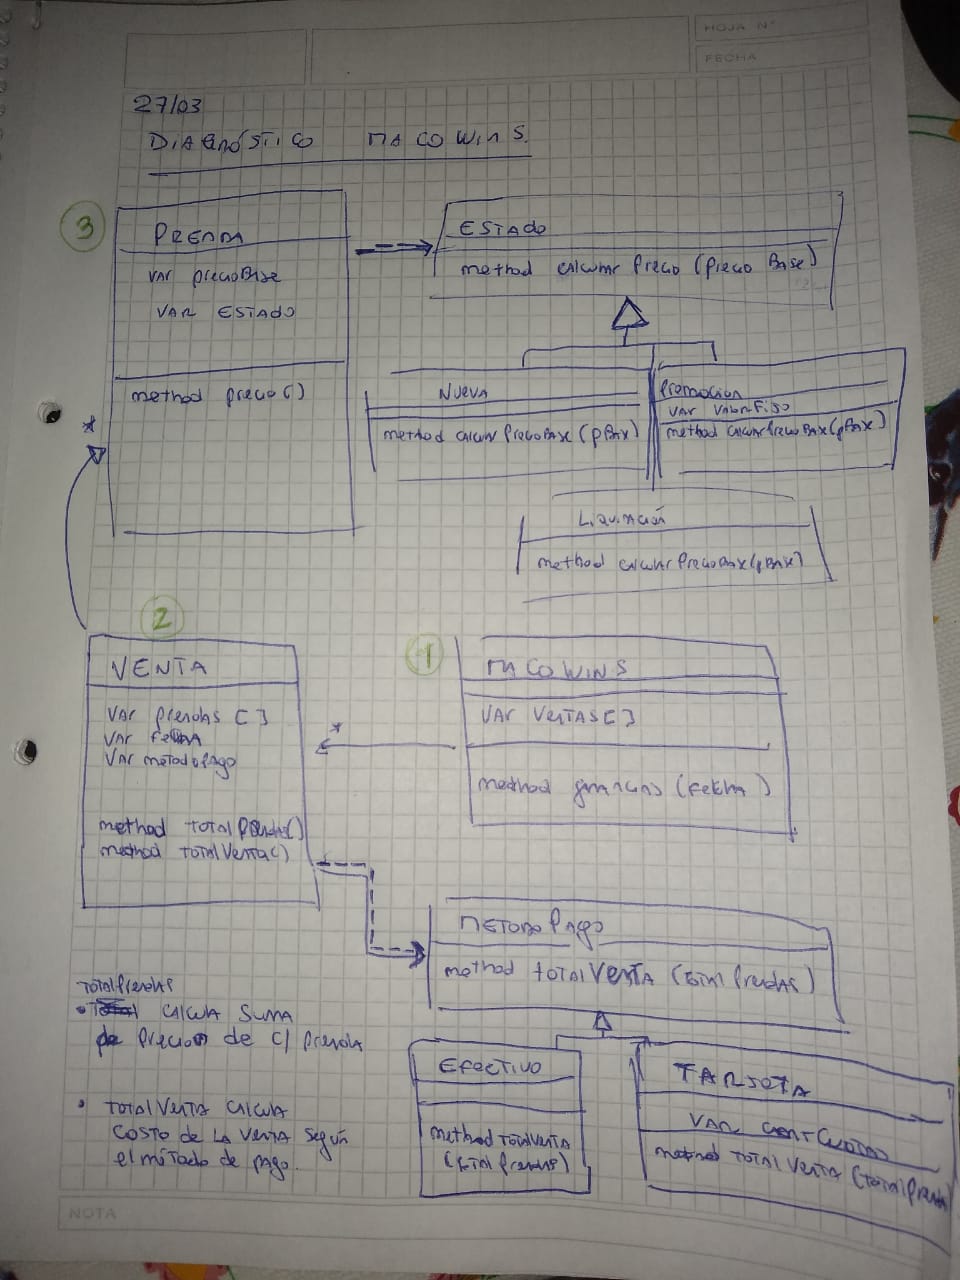 HOJA N°
FECHA
27/03
DIAGNÓSTICO MACOWINS.
3
PRENDA
VAR precioBase
VAR ESTADO
method precio()
*
ESTADO
method calcular Precio (precio Base)
NUEVA
method calcular PrecioBase (pBase)
Promocion
VAR ValorFijo
method calcular PrecioBase (pBase)
Liquidación
method calcular PrecioBase (pBase)
2
VENTA
VAR prendas []
VAR Fecha
Var metodoPago
method TOTALPrendas()
method TOTALVenta()
1
MACOWINS
VAR VENTAS[]
*
method ganancias (Fecha)
METODO Pago
method totalVENTA (total Prendas)
EFECTIVO
method TOTALVENTA
(total Prendas)
TARJETA
VAR cantCuotas
method TOTAL VENTA (totalPrendas)
TOTALPrendas
• calcula SUMA
de Precion de c/ prenda
• TOTALVENTA calcula
COSTO de LA VENTA según
el método de pago.
NOTA